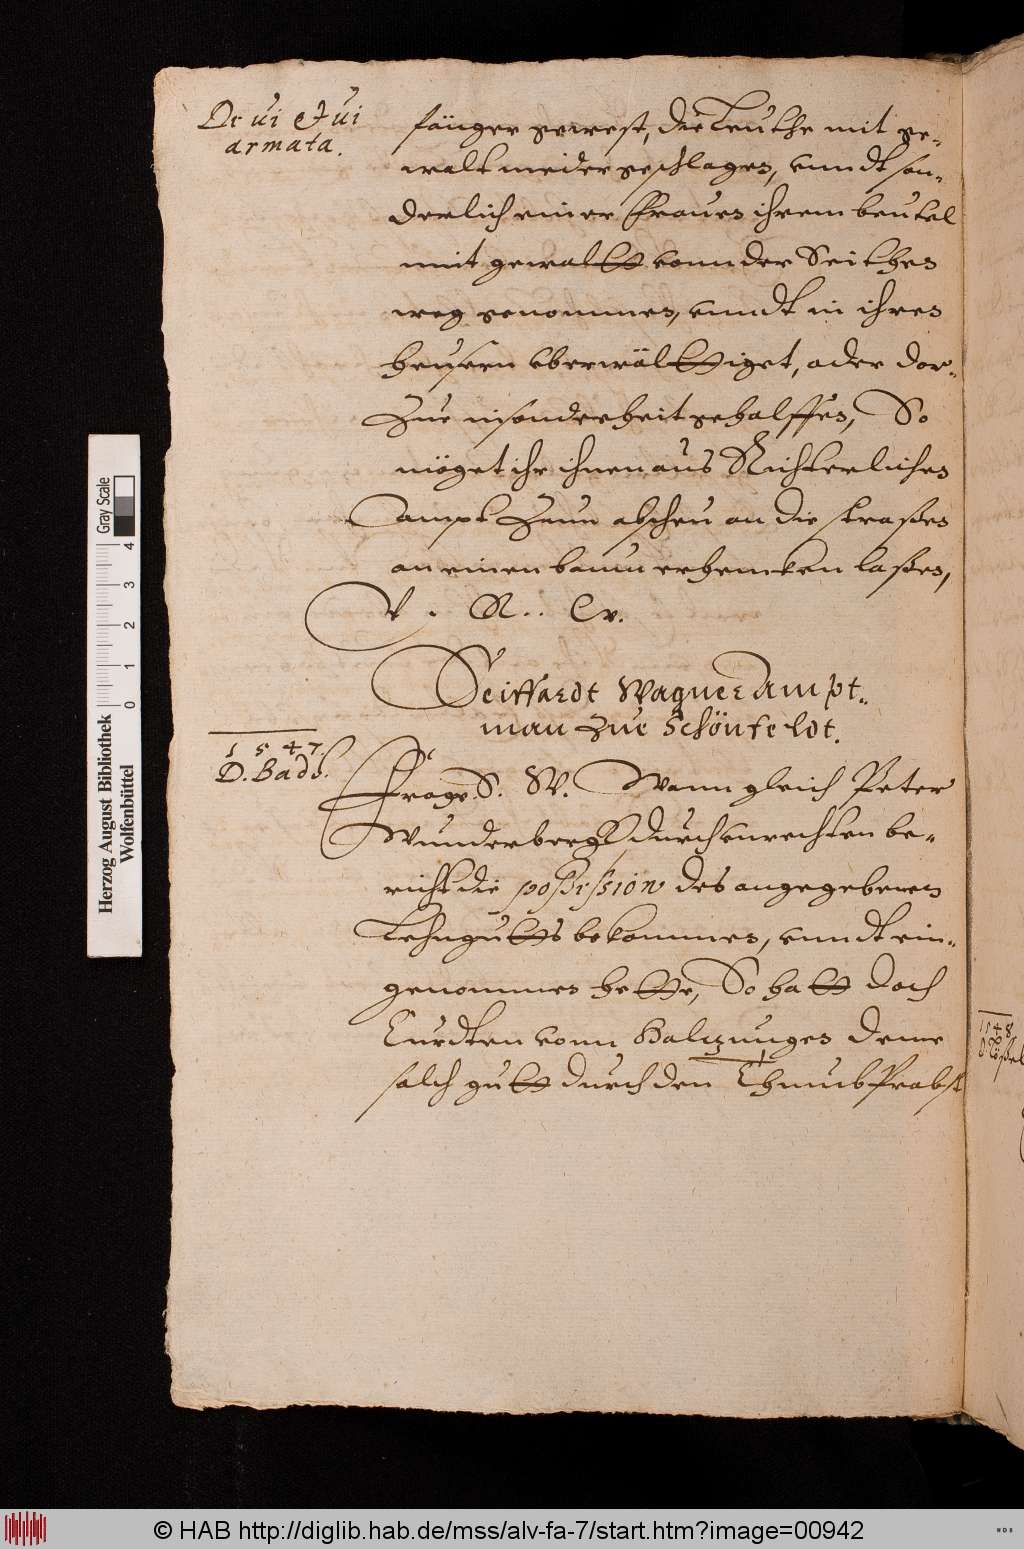 De vi et vi
armata.
fänger gewest, die Leuthe mit ge-
walt nieder geschlagen, vnndt son-
derlich einer Frauen ihrem beutel
mit gewaltt vonn der Seithen
weg genommen, vnndt in ihren
heusern vberwälttiget, oder dor-
Zue insonderheit geholffen, So
möget ihr ihnen aus Richterlichen
Ampt Zum abscheu an die straßen
an einen baum erhencken laßen,
V. R. W.
Seiffardt Wagner Ampt-
man Zue Schönfeldt.
1547
D. Bad
Frage. S. W. Wann gleich Peter
Wunderbergk durch vnrechten be-
richt die possission des angegebenen
Lehngutts bekommen, vnndt ein-
genommen hette, So hatt doch
Curdten vonn Holtzungen deme
solch gutt durch den Thumb Probst
1548
Gray Scale
4 3 2 1 0
Herzog August Bibliothek
Wolfenbüttel
© HAB http://diglib.hab.de/mss/alv-fa-7/start.htm?image=00942